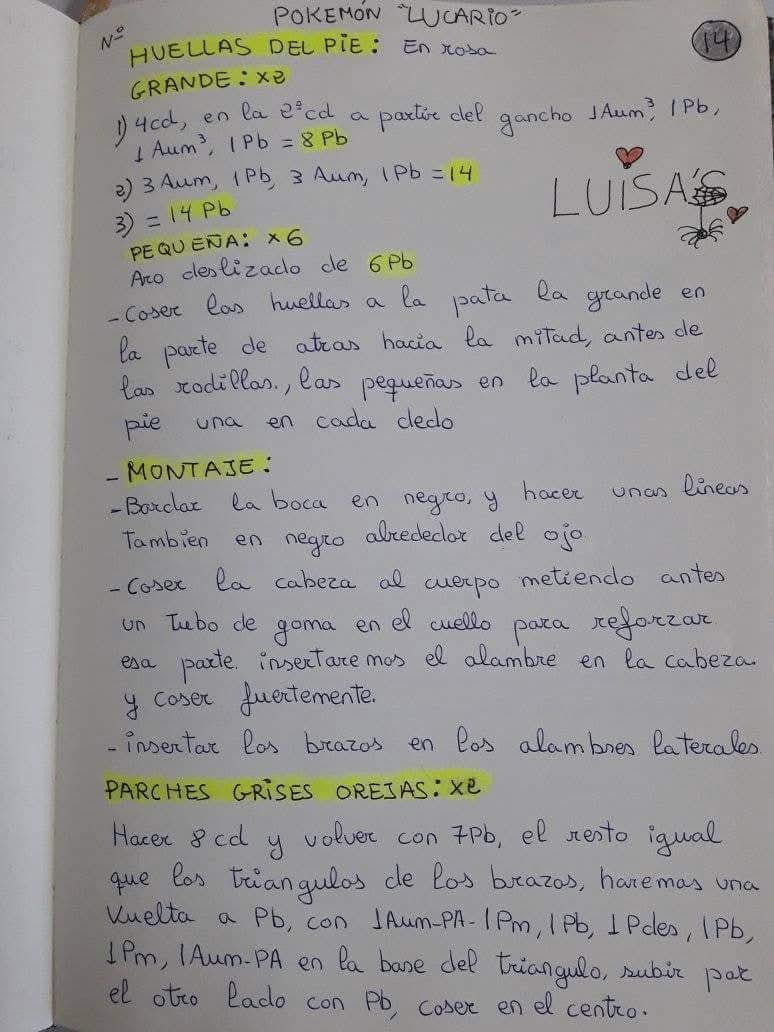 POKEMÓN "LUCARIO"
Nº
14
HUELLAS DEL PIE: En rosa
GRANDE: x2
1) 4cd, en la 2ªcd a partir del gancho 1Aum³, 1Pb,
1 Aum³, 1Pb = 8Pb
2) 3 Aum, 1Pb, 3 Aum, 1Pb = 14
3) = 14 Pb
LUISA'S
PEQUEÑA: x6
Aro deslizado de 6Pb
- Coser las huellas a la pata la grande en
la parte de atras hacia la mitad, antes de
las rodillas., las pequeñas en la planta del
pie una en cada dedo
- MONTAJE:
- Bordar la boca en negro, y hacer unas lineas
Tambien en negro alrededor del ojo
- Coser la cabeza al cuerpo metiendo antes
un Tubo de goma en el cuello para reforzar
esa parte. insertaremos el alambre en la cabeza.
y coser fuertemente.
- insertar los brazos en los alambres laterales.
PARCHES GRISES OREJAS: x2
Hacer 8cd y volver con 7Pb, el resto igual
que los triangulos de los brazos, haremos una
Vuelta a Pb, con 1Aum-PA-1Pm, 1Pb, 1Pdes, 1Pb,
1Pm, 1Aum-PA en la base del triangulo, subir por
el otro lado con Pb, coser en el centro.